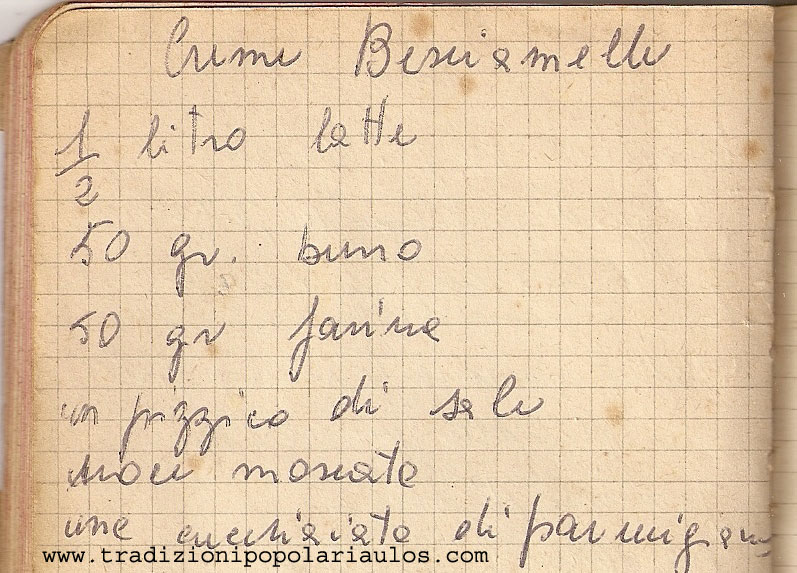 Crema Besciamella
1/2 litro latte
50 gr. burro
50 gr farina
un pizzico di sale
noce moscata
una cucchiaiata di parmigiano
www.tradizionipopolariaulos.com